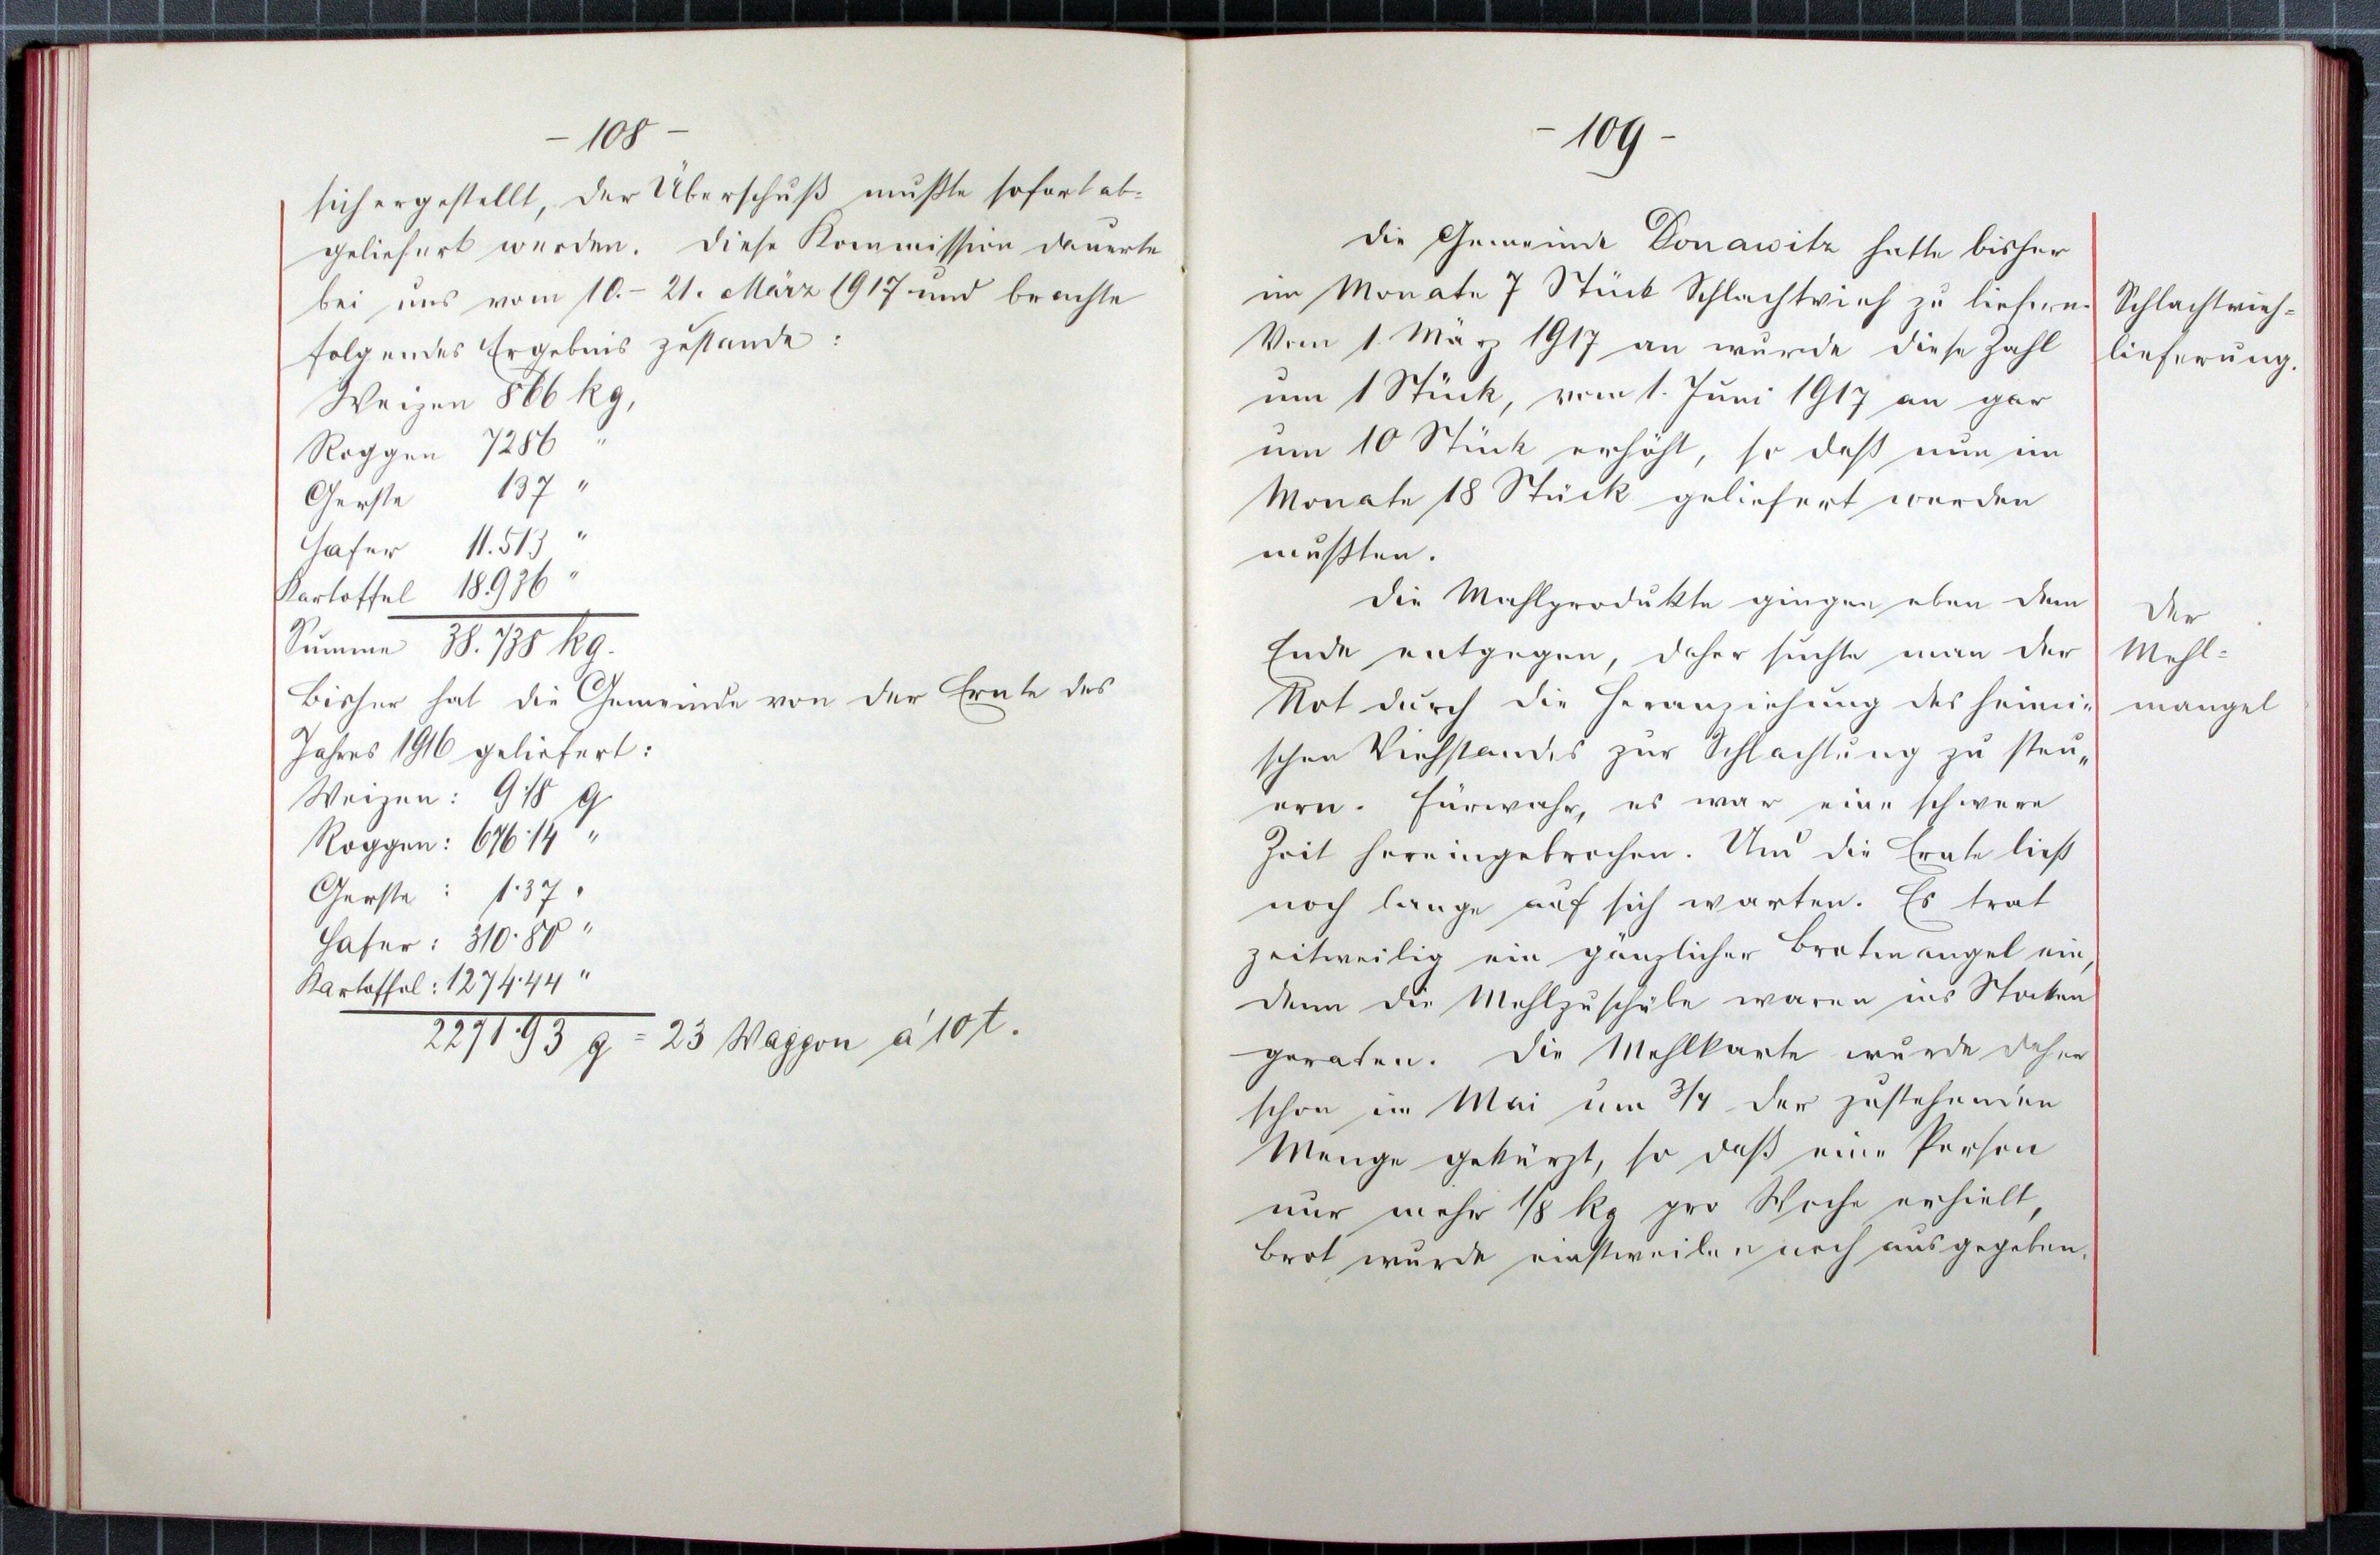 - 108 -
sichergestellt, der Überschuß mußte sofort ab=
geliefert werden. Diese Kommission dauerte
bei uns vom 10.- 21. März 1917 und brachte
folgendes Ergebnis zustande:
Weizen 866 kg,
Roggen 7286 "
Gerste 137 "
Hafer 11.513 "
Kartoffel 18.936 "
Summe 38.738 kg.
Bisher hat die Gemeinde von der Ernte des
Jahres 1916 geliefert:
Weizen: 9·18 q
Roggen: 676·14 "
Gerste : 1·37 "
Hafer: 310·80 "
Kartoffel: 1274·44 "
2271·93 q = 23 Waggon á 10 t.
- 109 -
Die Gemeinde Donawitz hatte bisher
im Monate 7 Stück Schlachtvieh zu liefern.
Vom 1. März 1917 an wurde diese Zahl
um 1 Stück, vom 1. Juni 1917 an gar
um 10 Stück erhöht, so daß nun im
Monate 18 Stück geliefert werden
mußten.
Die Mahlprodukte gingen eben dem
Ende entgegen, daher suchte man der
Not durch die Heranziehung des heimi=
schen Viehstandes zur Schlachtung zu steu„
ern. Fürwahr, es war eine schwere
Zeit hereingebrochen. Und die Ernte ließ
noch lange auf sich warten. Es trat
zeitweilig ein gänzlicher Brotmangel ein,
denn die Mehlzuschübe waren ins Stocken
geraten. Die Mehlkarte wurde daher
schon im Mai um 3/4 der zustehenden
Menge gekürzt, so daß eine Person
nur mehr 1/8 kg pro Woche erhielt,
Brot wurde einstweilen noch ausgegeben.
Schlachtvieh=
lieferung.
Der
Mehl=
mangel